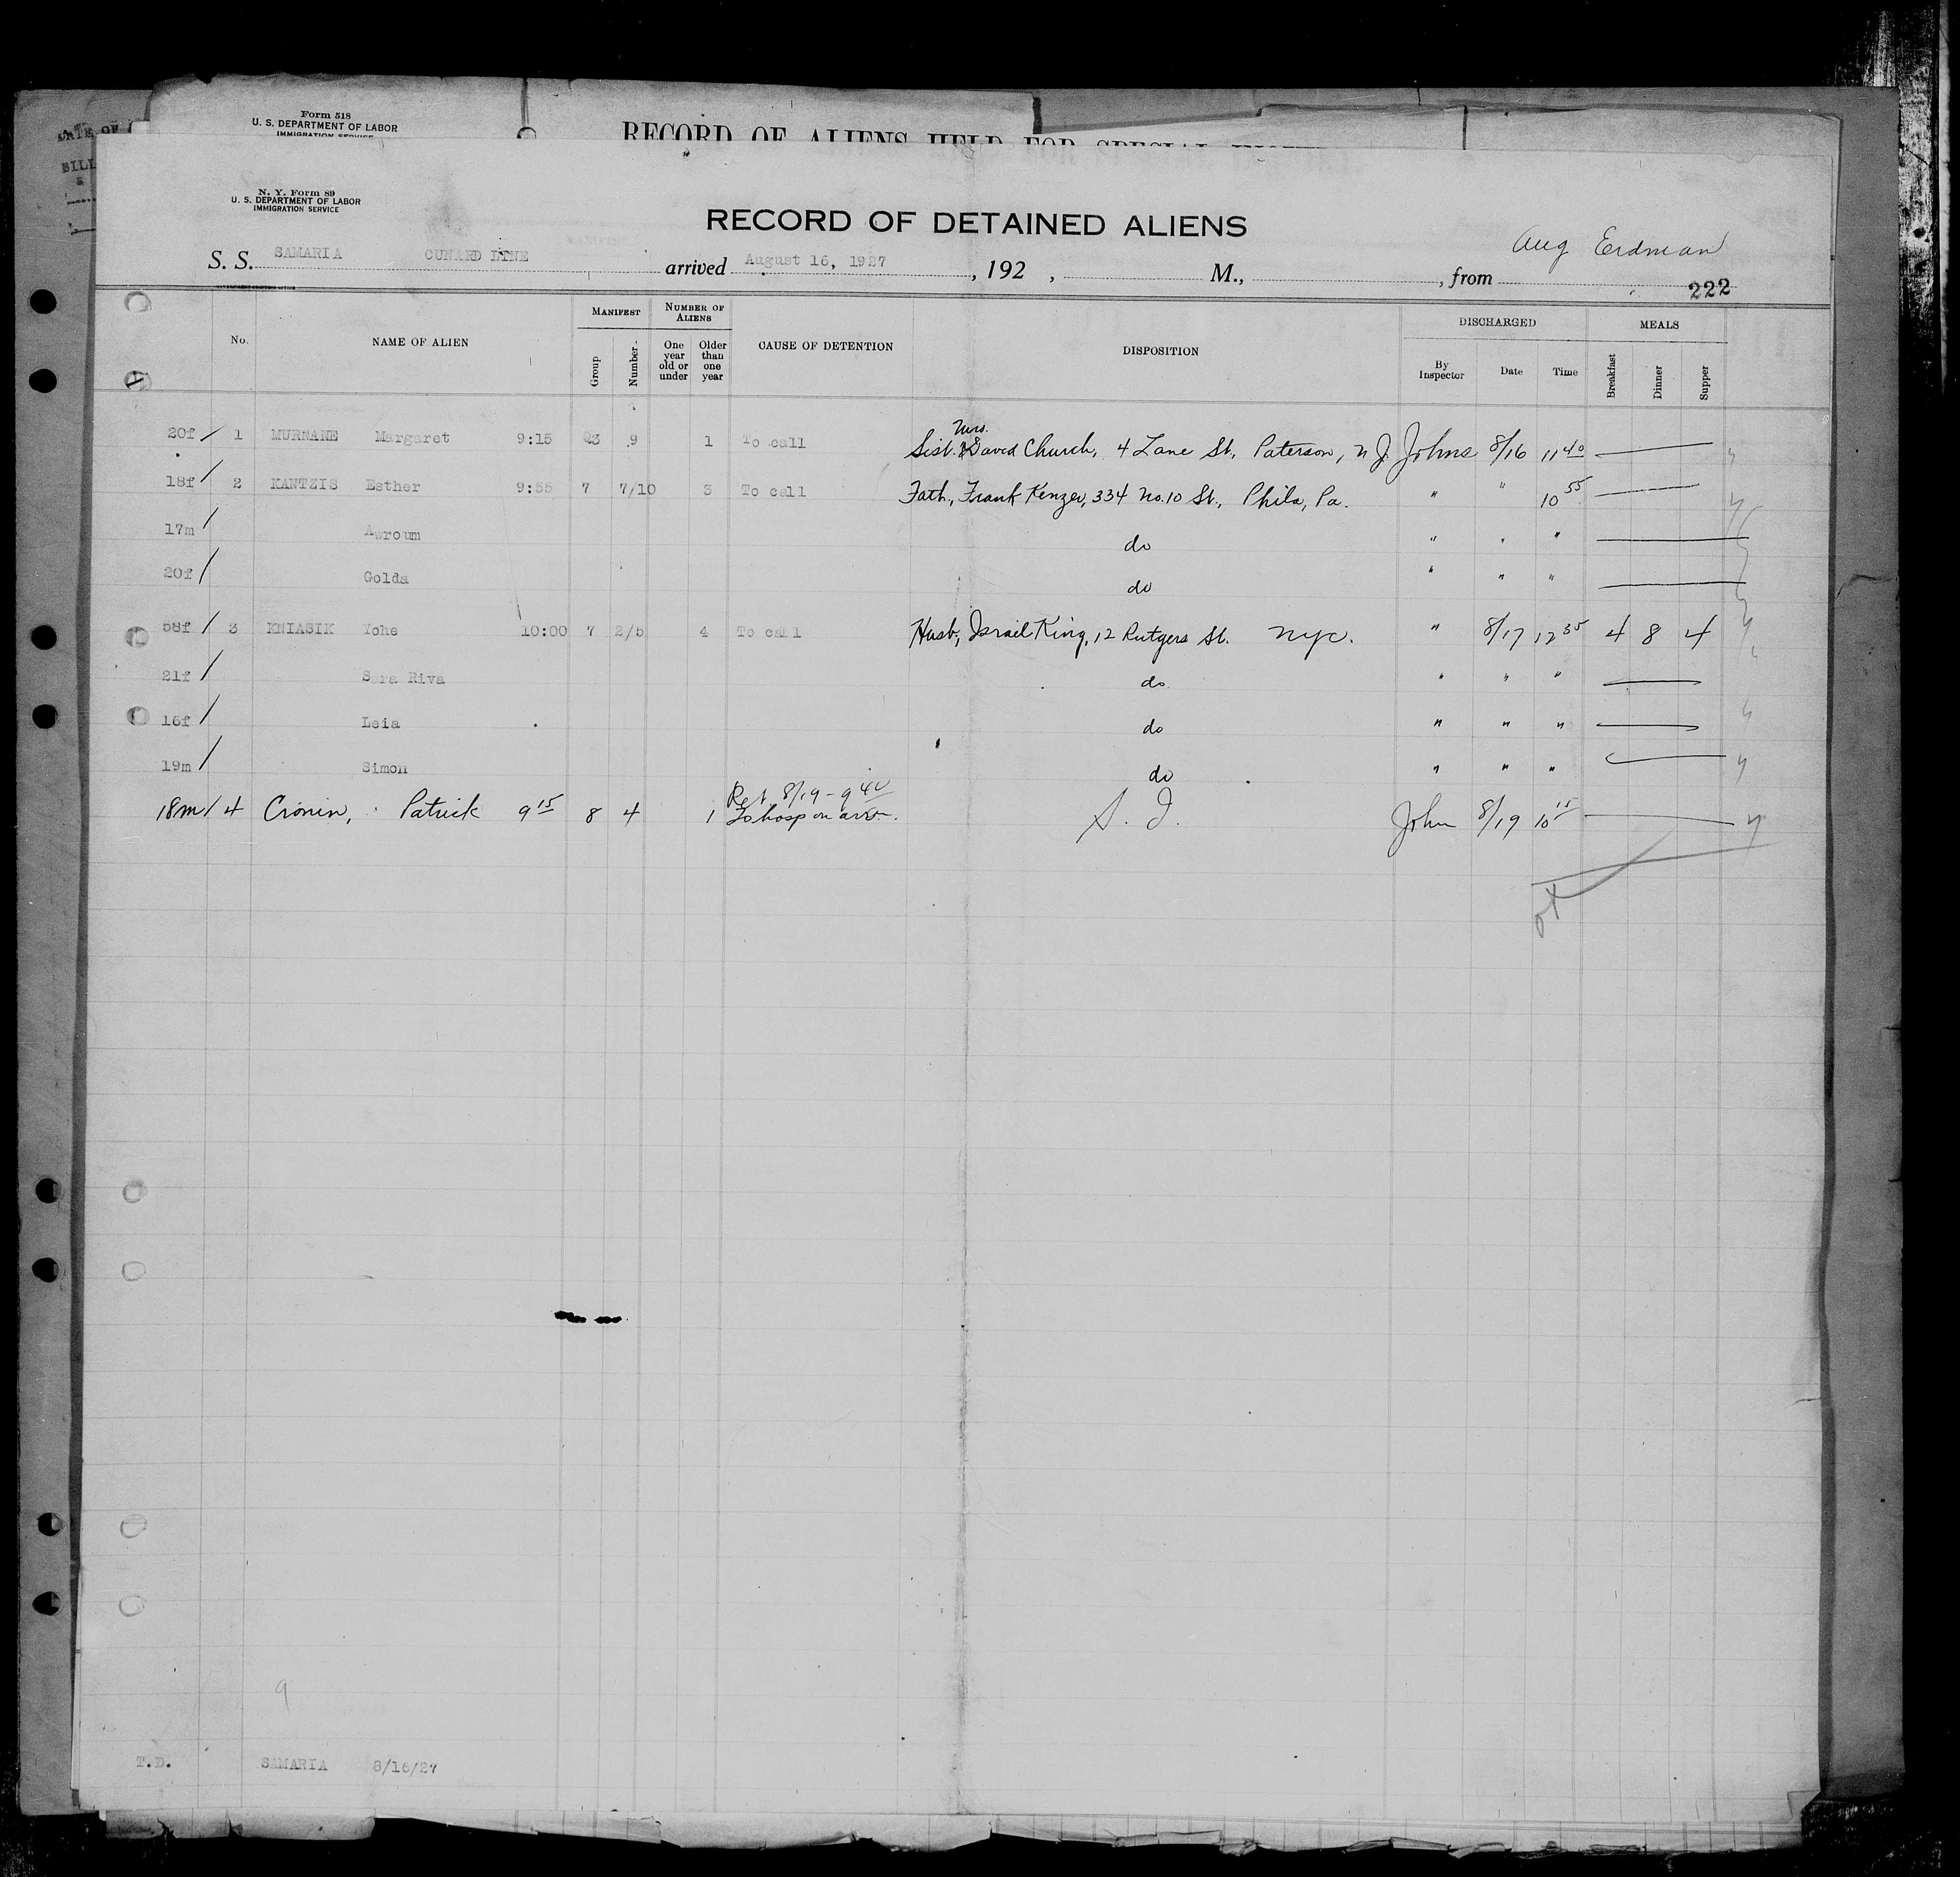 Form 518
U. S. DEPARTMENT OF LABOR
IMMIGRATION SERVICE
RECORD OF ALIENS HELD FOR SPECIAL
BILL
N. Y. Form 89
U. S. DEPARTMENT OF LABOR
IMMIGRATION SERVICE
RECORD OF DETAINED ALIENS
Aug Erdman
S. S. SAMARIA CUNARD LINE arrived August 16, 1927, 192 , M., , from
222
No. NAME OF ALIEN MANIFEST Group Number. NUMBER OF ALIENS One year old or under Older than one year CAUSE OF DETENTION DISPOSITION DISCHARGED By Inspector Date Time MEALS Breakfast Dinner Supper
20f / 1 MURNANE Margaret 9:15 23 9 1 To call Sist. Mrs. David Church, 4 Lane St, Paterson, N J. Johns 8/16 11 40
18f / 2 KANTZIS Esther 9:55 7 7/10 3 To call Fath, Frank Kenzer, 334 No. 10 St., Phila, Pa. " " 10 55
17m / Awroum do " " "
20f / Golda do " " "
58f / 3 KNIASIK Yohe 10:00 7 2/5 4 To call Husb, Israel King, 12 Rutgers St. NYC. " 8/17 12 35 4 8 4
21f / Sara Riva do " " "
16f / Leia do " " "
19m / Simon do " " "
18m / 4 Cronin, Patrick 9 15 8 4 1 Ret 8/19 - 9 40
To hosp on arr. S. I. John 8/19 10 15
ok
9
T.D. SAMARIA 8/16/27